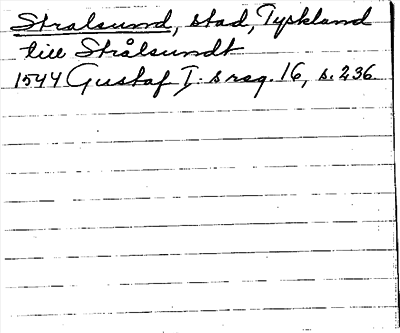 Stralsund, stad, Tyskland
till Strålsundt
1544 Gustaf I. s reg. 16, s. 236